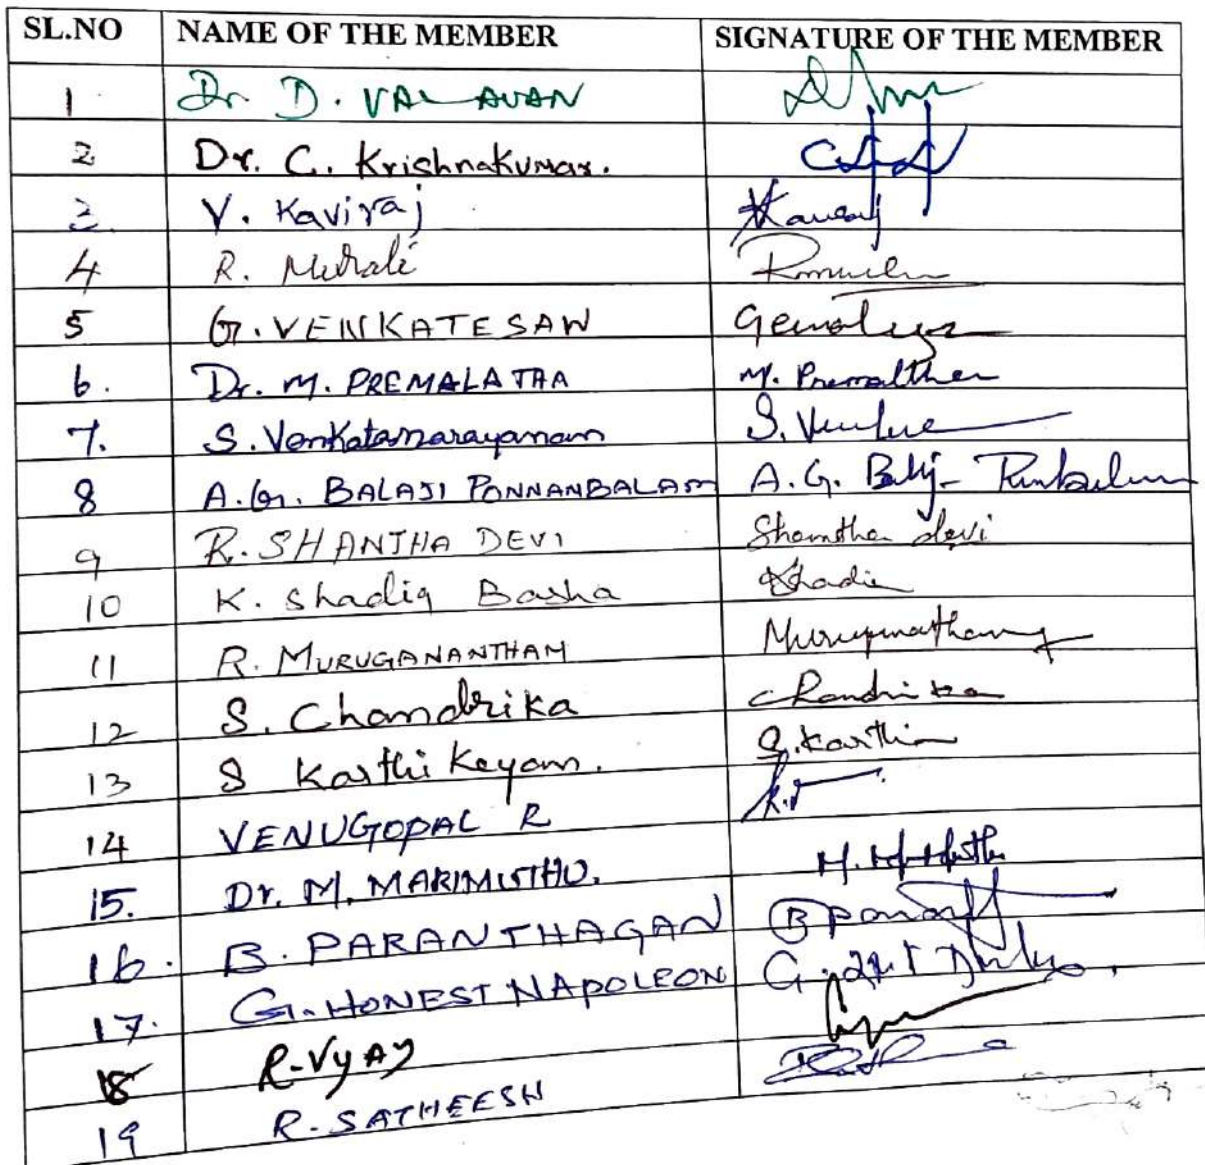 SL.NO NAME OF THE MEMBER SIGNATURE OF THE MEMBER
1 Dr. D. VALAVAN
2 Dr. C. Krishnakumar.
3. V. Kaviraj
4 R. Murali
5 G. VENKATESAN
6. Dr. M. PREMALATHA M. Premalatha
7. S. Venkatanarayanan S.
8 A.G. BALAJI PONNANBALAM A. G.
9 R. SHANTHA DEVI Shantha devi
10 K. Shadiq Basha
11 R. MURUGANANTHAM
12 S. Chandrika Chandrika
13 S Karthi Keyan. S. Karthi
14 VENUGOPAL R
15. Dr. M. MARIMUTHU. M.
16. B. PARANTHAGAN B
17. G. HONEST NAPOLEON G.
18 R-VIJAY
19 R. SATHEESH